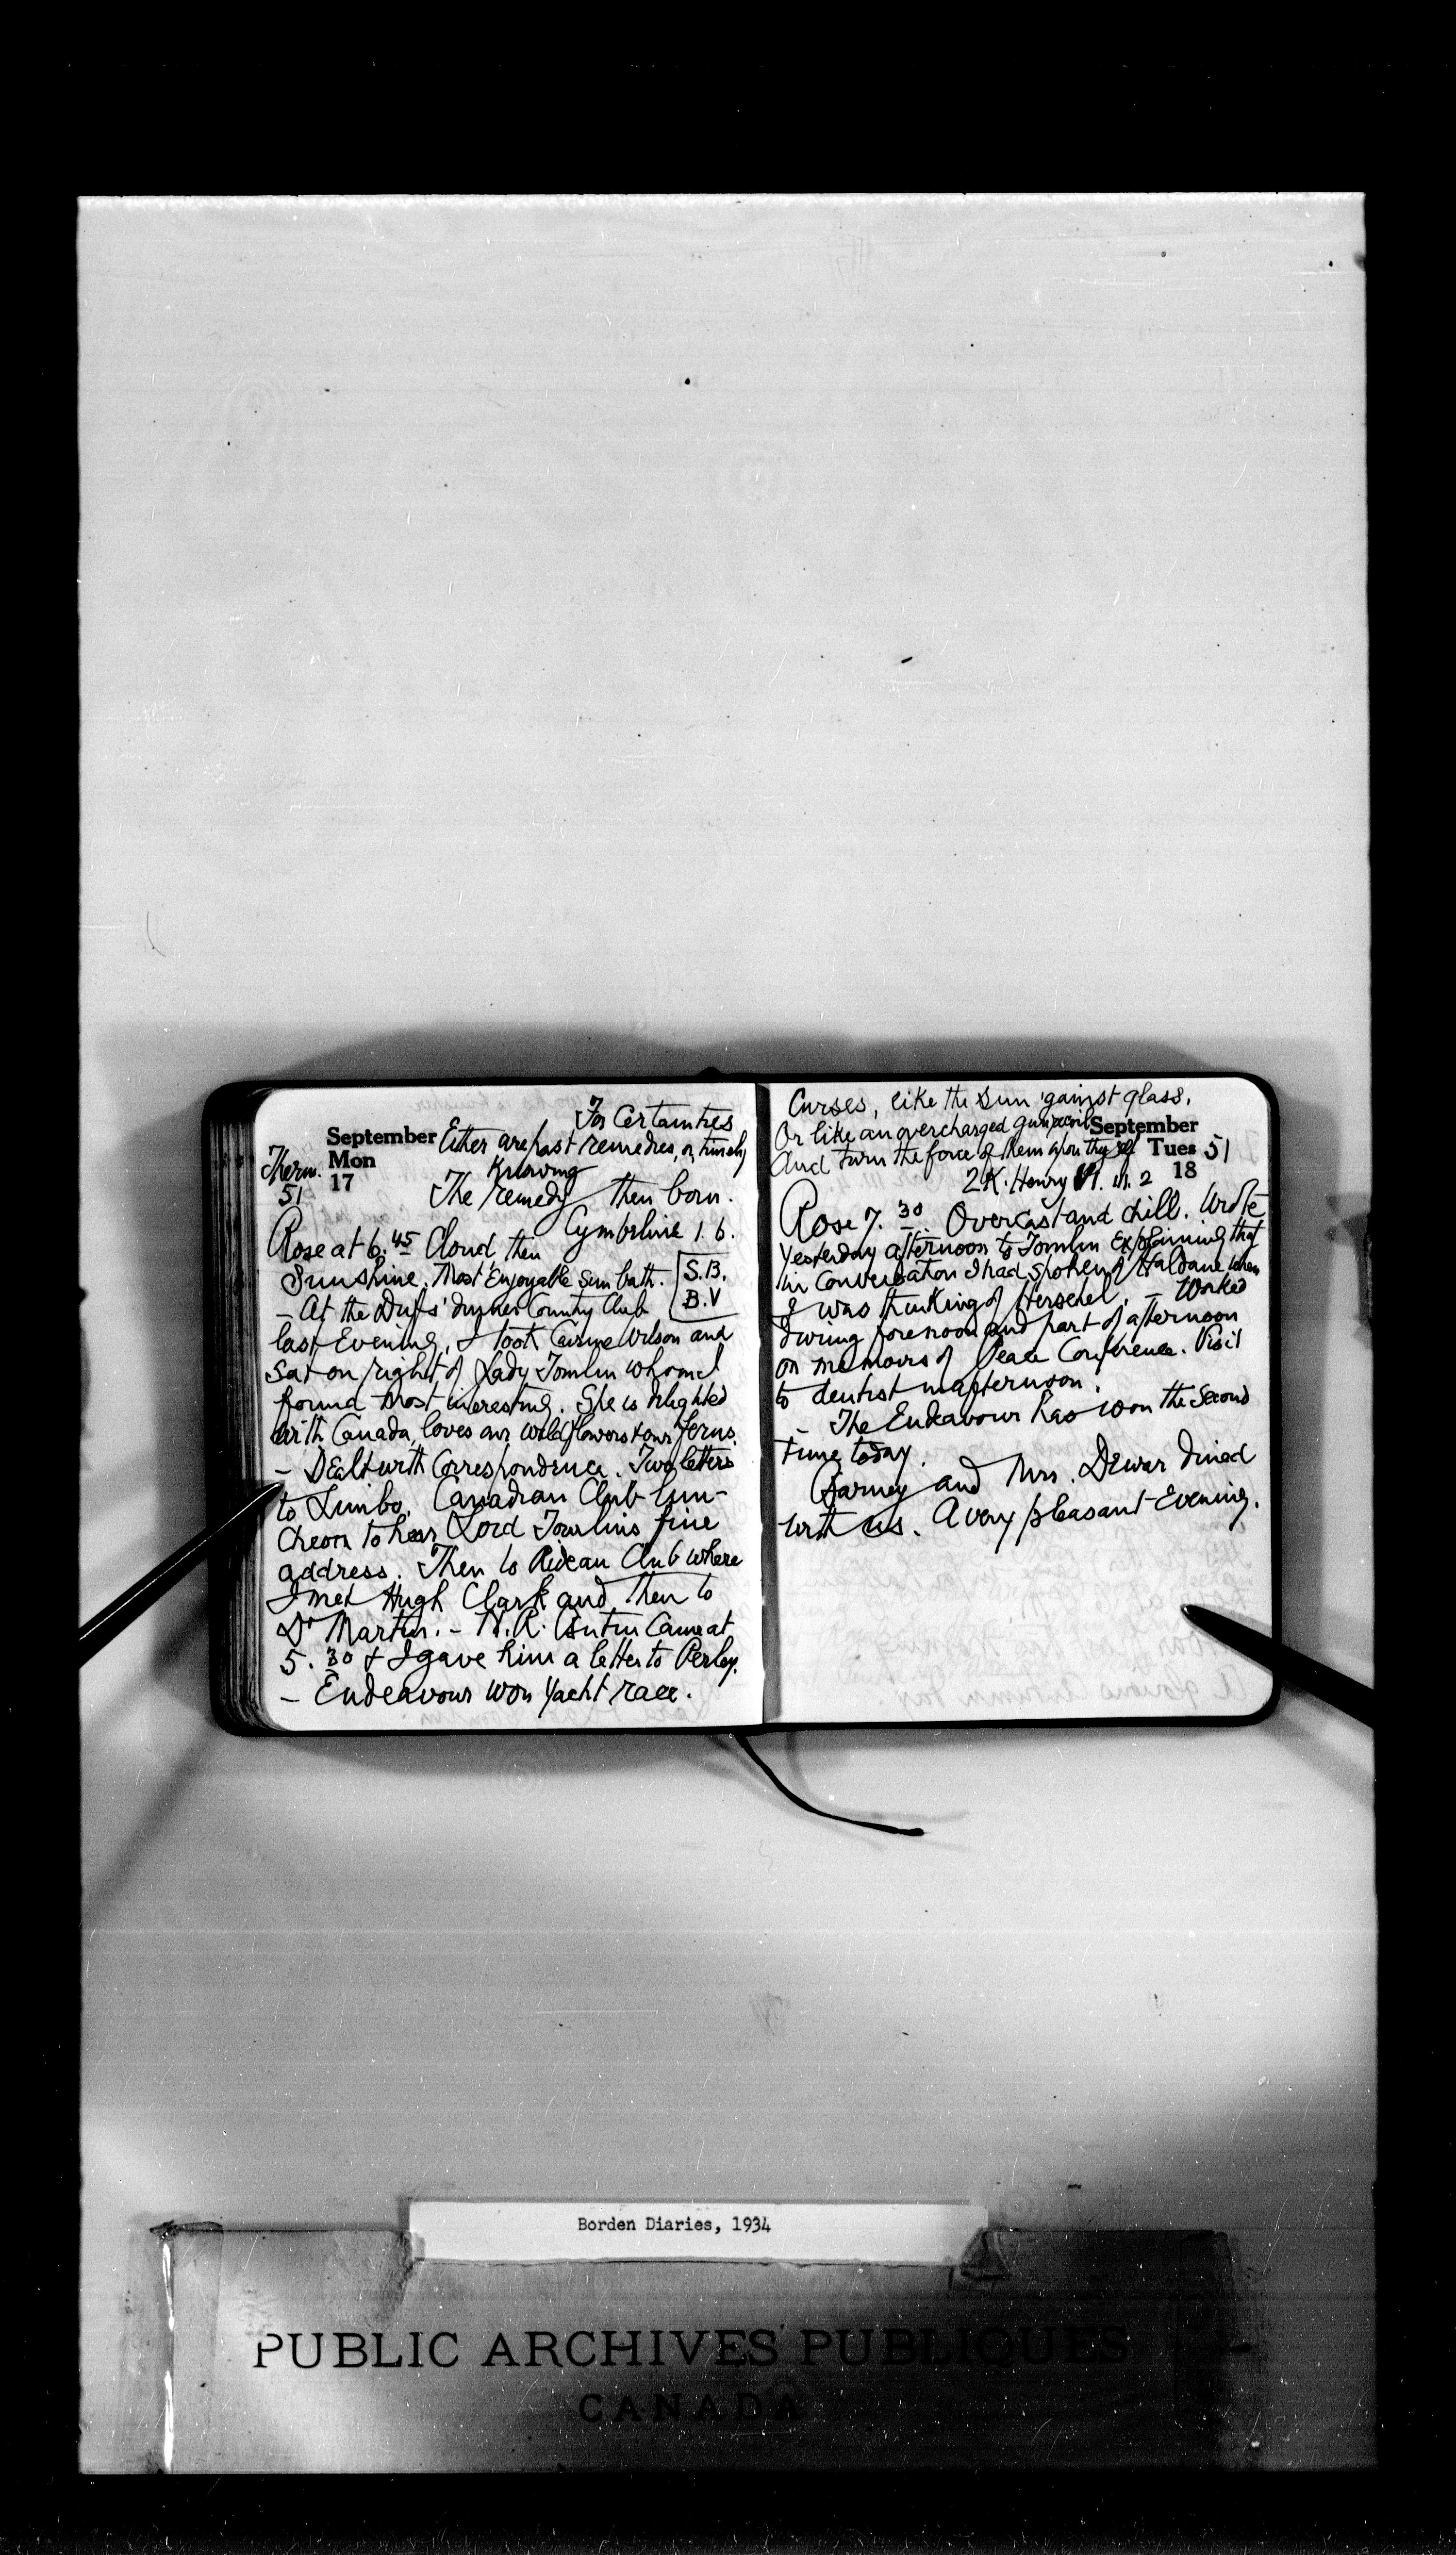 For Certainties
September Either are past remedies, or, timely
Therm. Mon Knowing
51 17 The remedy then born.
Cymbeline 1. 6.
Rose at 6.45 Cloud, then
Sunshine. Most Enjoyable Sun bath. S.B.
B.V
– At the Duffs' dinner Country Club
last Evening, I took Wilson and
Sat on right of Lady Tomlin whom I
found most interesting. She is delighted
with Canada, loves our wild flowers & our ferns.
– Dealt with Correspondence. Two letters
to Limbo. Canadian Club Lun-
cheon to hear Lord Tomlins fine
address. Then to Rideau Club where
I met Hugh Clark and then to
Dr Martin. – H.R. Came at
5.30 & I gave him a letter to Perley.
– Endeavour won Yacht race.
Curses, like the Sun 'gainst glass,
Or like an overcharged gun, recoil September
And turn the force of them upon thyself Tues 51
2 K. Henry VI. III. 2 18
Rose 7.30 Overcast and chill. Wrote
Yesterday afternoon to Tomlin Explaining that
in Conversation I had spoken of Haldane when
I was thinking of Herschel. – Worked
during forenoon and part of afternoon
on memoirs of Peace Conference. Visit
to dentist in afternoon.
– The Endeavour has won the Second
time today.
and Mrs. Dewar dined
with us. A very pleasant Evening.
Borden Diaries, 1934
PUBLIC ARCHIVES PUBLIQUES
CANADA